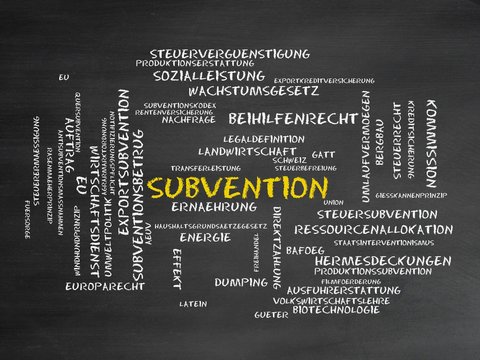 STEUERVERGUENSTIGUNG
PRODUKTIONSERSTATTUNG
EU
SOZIALLEISTUNG
EXPORTKREDITVERSICHERUNG
WACHSTUMSGESETZ
SUBVENTIONSKODEX
RENTENVERSICHERUNG
NACHFRAGE
BEIHILFENRECHT
LEGALDEFINITION
LANDWIRTSCHAFT
GATT
SCHWEIZ
TRANSFERLEISTUNG
STEUERBEFREIUNG
SUBVENTION
ERNAEHRUNG
UNION
GIESSKANNENPRINZIP
STEUERSUBVENTION
HAUSHALTSGRUNDSAETZEGESETZ
RESSOURCENALLOKATION
ENERGIE
STAATSINTERVENTIONISMUS
BAFOEG
HERMESDECKUNGEN
PRODUKTIONSSUBVENTION
DUMPING
FILMFOERDERUNG
EUROPARECHT
AUSFUHRERSTATTUNG
LATEIN
VOLKSWIRTSCHAFTSLEHRE
BIOTECHNOLOGIE
GUETER
FUERSORGE
RASENMAEHERPRINZIP
QUERSUBVENTION
AUFTRAG
EU
WIRTSCHAFTSDIENST
UMWELTPOLITIK
EXPORTSUBVENTION
SUBVENTIONSBETRUG
AEUV
EFFEKT
DIREKTZAHLUNG
UMLAUFVERMOEGEN
BERGBAU
STEUERRECHT
KREDITVERSICHERUNG
KOMMISSION